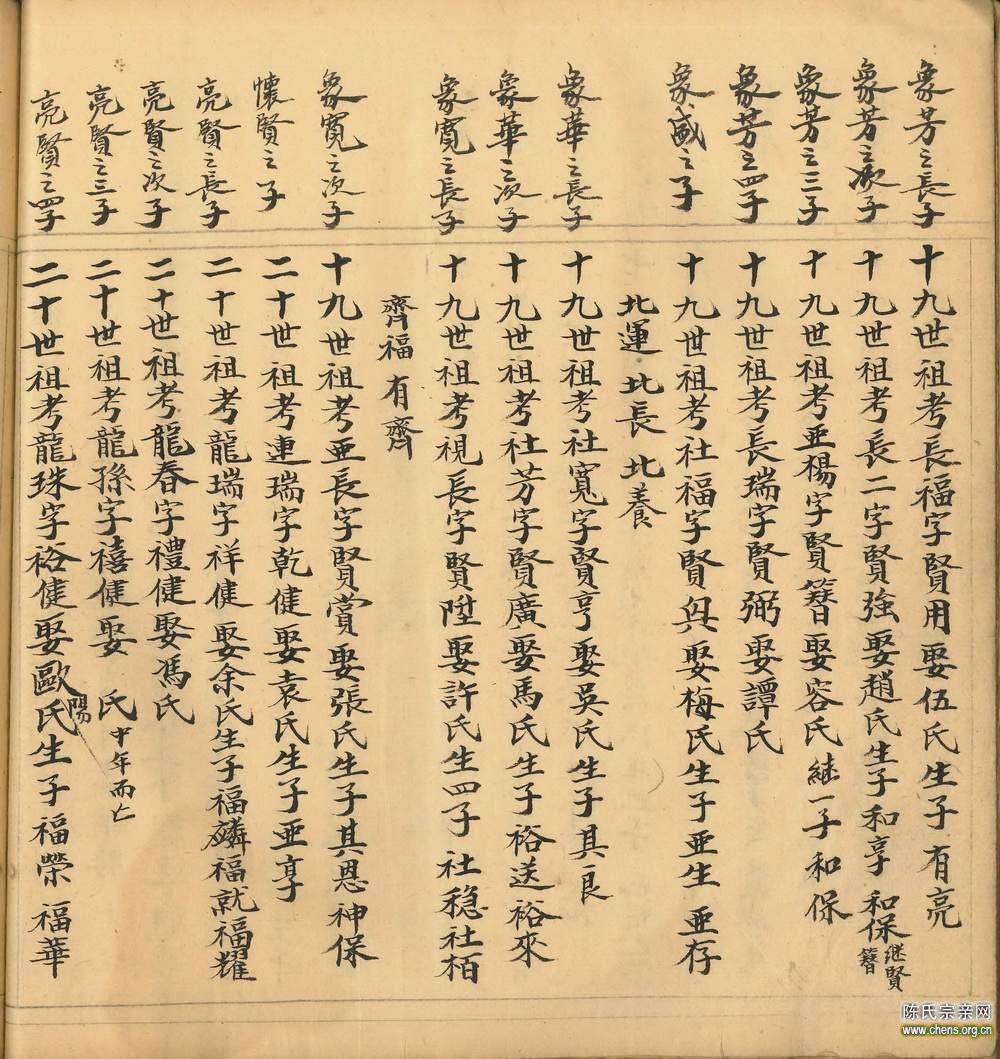 象芳之長子
十九世祖考長福字賢用娶伍氏生子有亮
象芳之次子
十九世祖考長二字賢強娶趙氏生子和享 和保继賢簪
象芳之三子
十九世祖考亚楊字賢簪娶容氏継一子和保
象芳之四子
十九世祖考長瑞字賢弼娶譚氏
象盛之子
十九世祖考社福字賢與娶梅氏生子亚生 亚存
北運 北長 北養
象華之長子
十九世祖考社寬字賢亨娶吳氏生子其良
象華之次子
十九世祖考社芳字賢廣娶馬氏生子裕送裕來
象寬之長子
十九世祖考視長字賢陞娶許氏生四子社穏社栢
齊福 有齊
象寬之次子
十九世祖考亚長字賢賞娶張氏生子其恩神保
懷賢之子
二十世祖考連瑞字乾健娶袁氏生子亚享
亮賢之長子
二十世祖考龍瑞字祥健娶余氏生子福麟福就福耀
亮賢之次子
二十世祖考龍春字禮健娶馮氏
亮賢之三子
二十世祖考龍孫字禧健娶 氏中年而亡
亮賢之四子
二十世祖考龍珠字裕健娶歐陽氏生子福榮福華
陈氏宗亲网
www.chens.org.cn